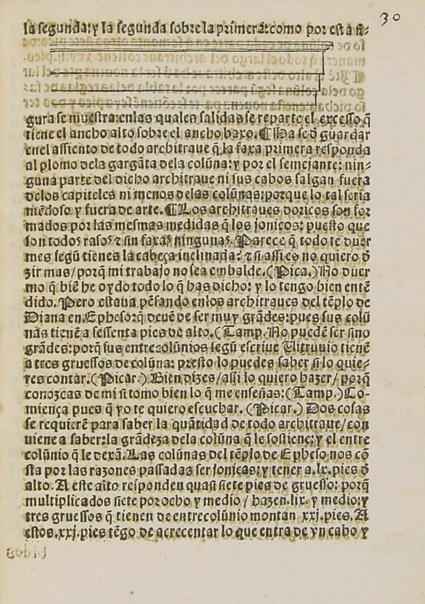 30
la segunda: y la segunda sobre la primera: como por esta fi-
gura se muestra: enlas quales salidas se reparte el excesso q̃
tiene el ancho alto sobre el ancho baxo. ¶ Ha se ð guardar
en el assiento de todo architraue q̃ la faxa primera responda
al plomo dela gargãta dela colũna: y por el semejante: nin-
guna parte del dicho architraue ni sus cabos salgan fuera
delos capiteles ni menos delas colũnas: porque lo tal seria
mẽdoso y fuera de arte. ¶ Los architraues doricos son for
mados por las mesmas medidas q̃ los jonicos: puesto que
son todos rasos y sin faxas ningunas. Parece q̃ todo te duer
mes segũ tienes la cabeça inclinada: y si assi es no quiero ð
zir mas/ porq̃ mi trabajo no sea embalde. (Pica.) No duer
mo q̃ biẽ he oydo todo lo q̃ has dicho: y lo tengo bien enten
dido. Pero estaua pẽsando enlos architraues del tẽplo de
Diana en Epheso q̃ deuẽ de ser muy grãdes: pues sus colũ
nas tienẽ a sessenta pies de alto. (Tamp. No puedẽ ser sino
grãdes: porq̃ sus entrecolũnios segũ escriue Uitruuio tienẽ
a tres gruessos de colũna: presto lo puedes saber si lo quie-
res contar. (Picar.) Bien dizes/ assi lo quiero hazer/ porq̃
conozcas de mi si tomo bien lo que me enseñas: (Tamp.) Co-
miença pues q̃ yo te quiero escuchar. (Picar.) Dos cosas
se requierẽ para saber la quãtidad de todo architraue/ con
uiene a saber: la grãdeza dela colũna q̃ le sostiene: y el entre
colũnio q̃ le dexã. Las colũnas del tẽplo de Epheso nos cõ
sta por las razones passadas ser jonicas: y tener a .lx. pies ð
alto. A este alto responden quasi siete pies de gruesso: porq̃
multiplicados siete por ocho y medio/ hazen .lix. y medio: y
tres gruessos q̃ tienen de entrecolũnio montan .xxj. pies. A
estos .xxj. pies tẽgo de acrecentar lo que entra de vn cabo y